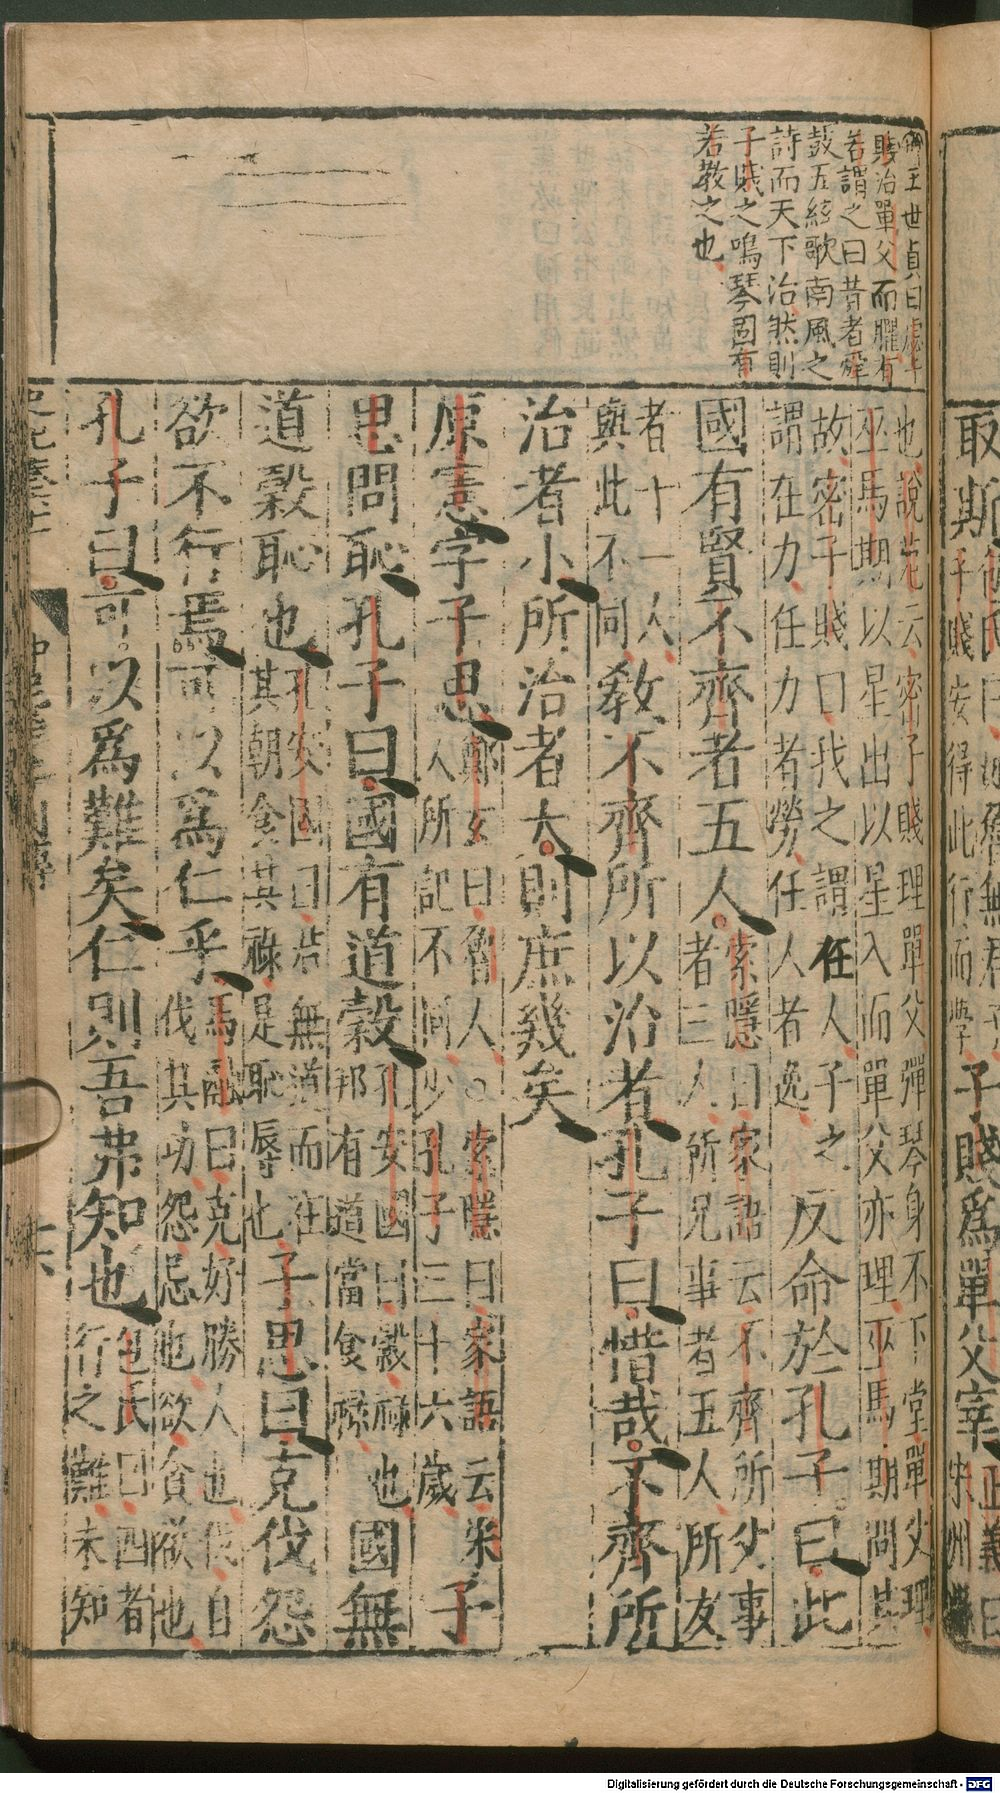 王世貞曰虙子
賤治單父而臞有
若謂之曰昔者舜
鼓五絃歌南風之
詩而天下治然則
子賤之鳴琴固有
若教之也
取斯
子賤安得此行而學
子賤爲單父宰
正義曰
宋州
也說苑云密子賤理單父彈琴身不下堂單父理
巫馬期以星出以星入而單父亦理巫馬期問其
故密子賤曰我之謂任人子之
謂在力任力者勞任人者逸
反命於孔子曰此
國有賢不齊者五人
索隱曰家語云不齊所父事
者三人所兄事者五人所友
者十一人
與此不同
教不齊所以治者孔子曰惜哉不齊所
治者小所治者大則庶幾矣
原憲字子思
鄭玄曰魯人○索隱曰家語云宋
人所記不同少孔子三十六歲
子
思問恥孔子曰國有道穀
孔安國曰穀祿也
邦有道當食祿
國無
道穀恥也
孔安國曰若無道而在
其朝食其祿是恥辱也
子思曰克伐怨
欲不行焉可以爲仁乎
馬融曰克好勝人也伐自
伐其功怨忌也欲貪欲也
孔子曰可以爲難矣仁則吾弗知也
包氏曰四者
行之難未知
Digitalisierung gefördert durch die Deutsche Forschungsgemeinschaft - DFG